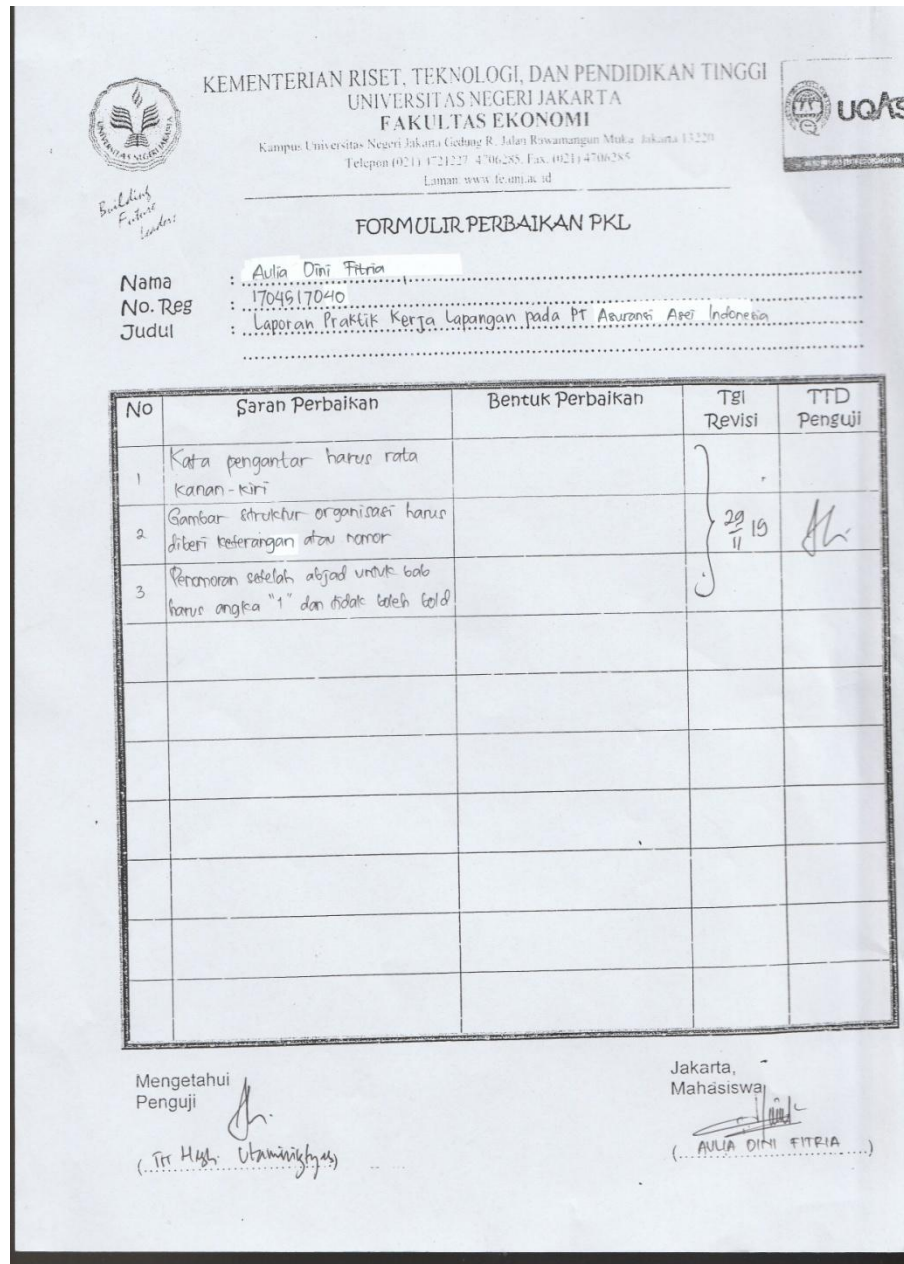 KEMENTERIAN RISET, TEKNOLOGI, DAN PENDIDIKAN TINGGI
UNIVERSITAS NEGERI JAKARTA
FAKULTAS EKONOMI
Kampus Universitas Negeri Jakarta Gedung R. Jalan Rawamangun Muka Jakarta 13220
Telepon (021) 4721227 4706285, Fax. (021) 4706285
Laman: www.fe.unj.ac.id
UNIVERSITAS NEGERI JAKARTA
Building
Future
Leaders
UQAS
FORMULIR PERBAIKAN PKL
Nama : Aulia Dini Fitria
No. Reg : 1704517040
Judul : Laporan Praktik Kerja Lapangan pada PT Asuransi Asei Indonesia
No Saran Perbaikan Bentuk Perbaikan Tgl Revisi TTD Penguji
1 Kata pengantar harus rata
kanan-kiri
2 Gambar struktur organisasi harus
diberi keterangan atau nomor
29/11 19
3 Penomoran setelah abjad untuk bab
harus angka "1" dan tidak boleh bold
Mengetahui
Penguji
Jakarta,
Mahasiswa
( Utaminingtyas)
( AULIA DINI FITRIA )